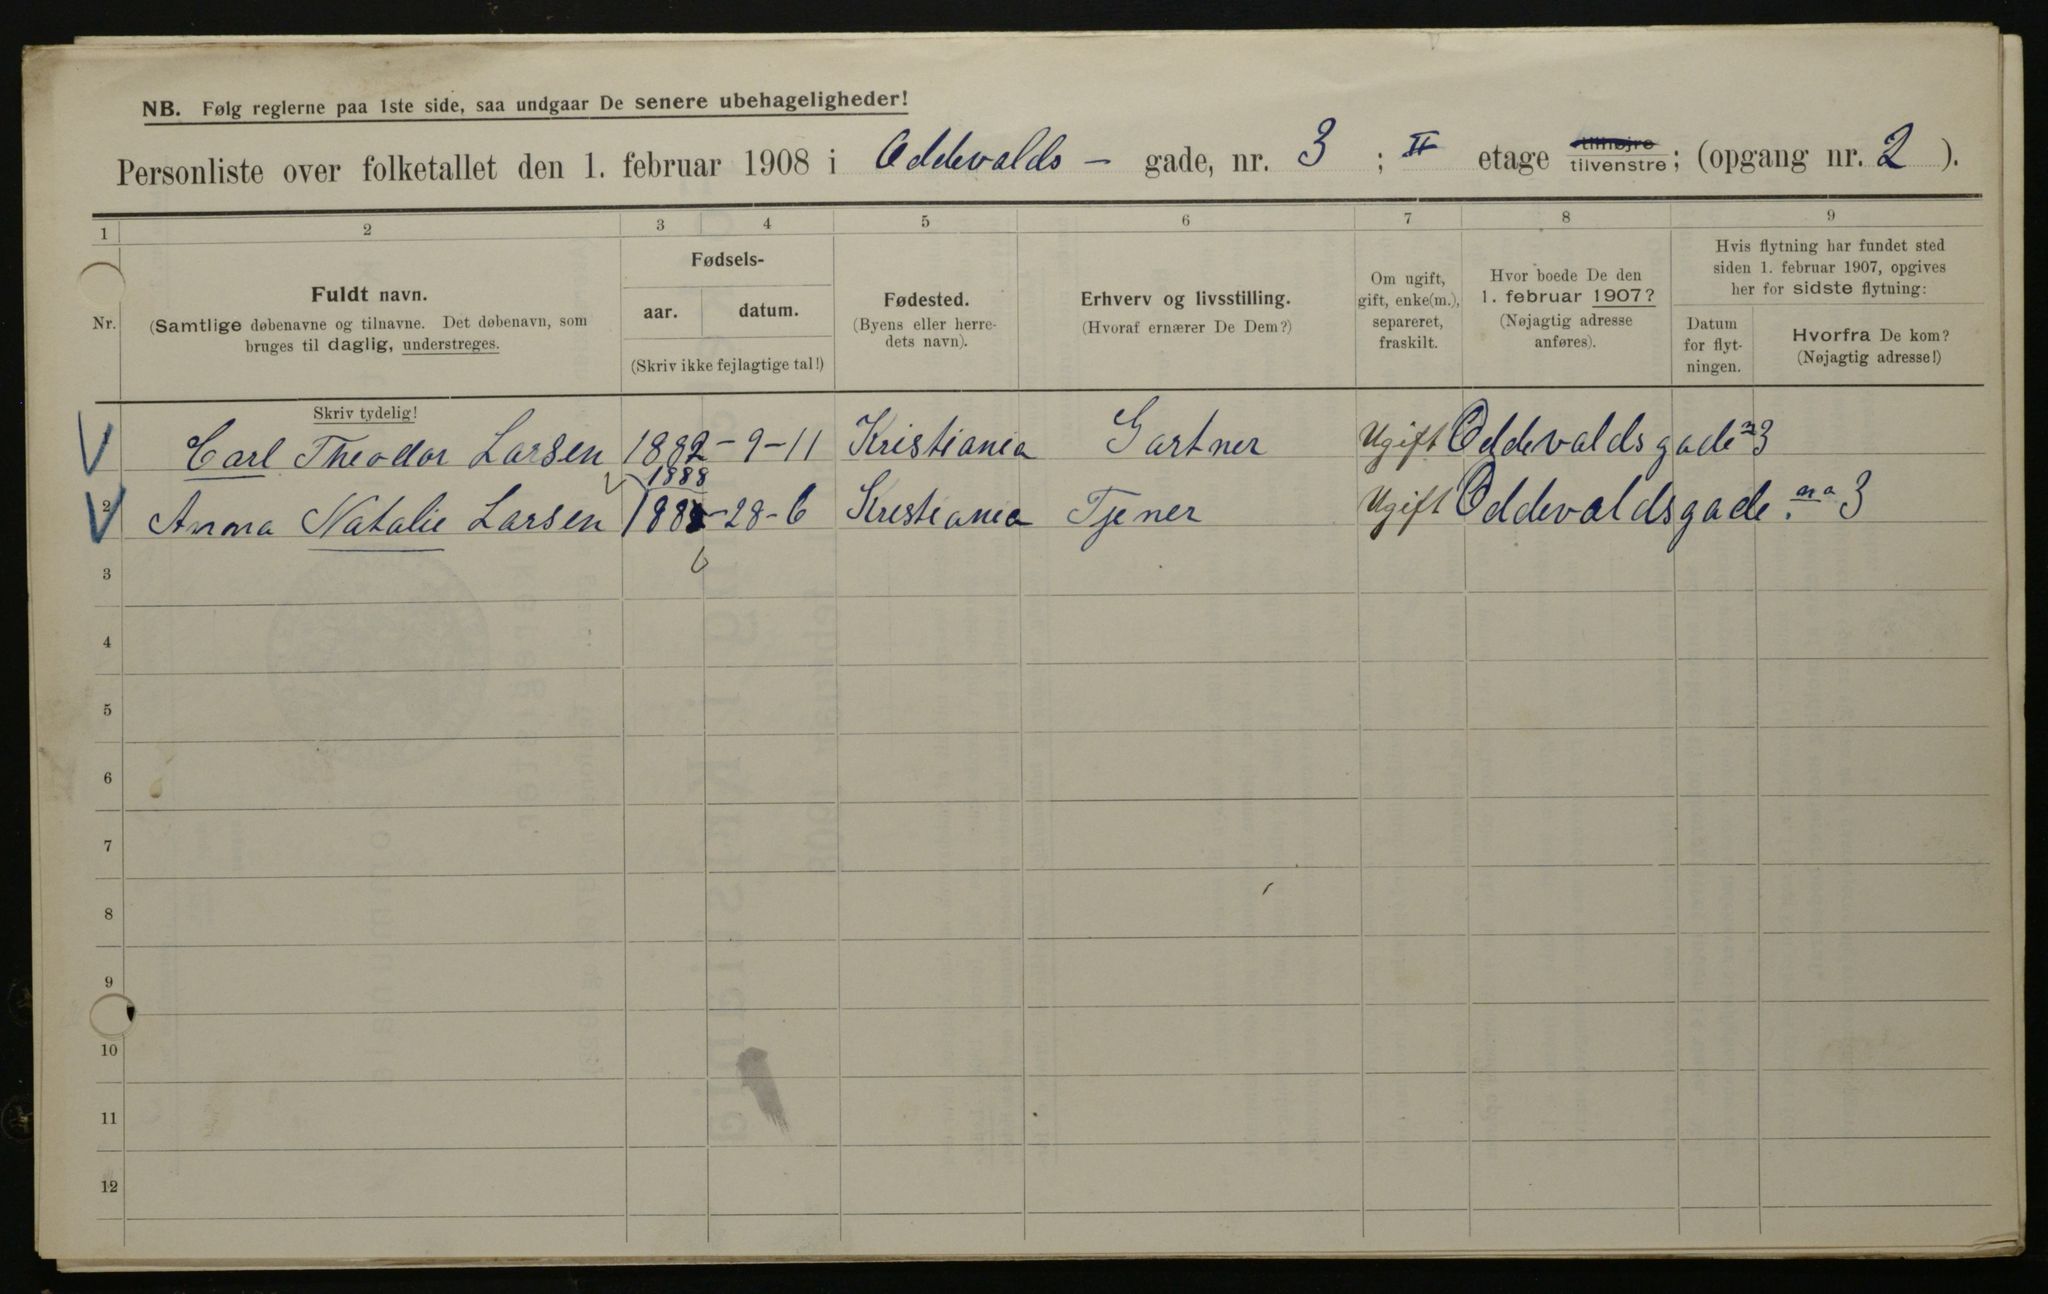 NB. Følg reglerne paa 1ste side, saa undgaar De senere ubehageligheder!
Personliste over folketallet den 1. februar 1908 i Oddevalds - gade, nr. 3 ; II etage tilhøjre tilvenstre; (opgang nr. 2 ).
1 2 3 4 5 6 7 8 9
Nr.
Fuldt navn.
(Samtlige døbenavne og tilnavne. Det døbenavn, som
bruges til daglig, understreges.
Fødsels-
aar. datum.
(Skriv ikke fejlagtige tal!)
Fødested.
(Byens eller herre-
dets navn).
Erhverv og livsstilling.
(Hvoraf ernærer De Dem?)
Om ugift,
gift, enke(m.),
separeret,
fraskilt.
Hvor boede De den
1. februar 1907?
(Nøjagtig adresse
anføres).
Hvis flytning har fundet sted
siden 1. februar 1907, opgives
her for sidste flytning:
Datum
for flyt-
ningen.
Hvorfra De kom?
(Nøjagtig adresse!)
Skriv tydelig!
Carl Theodor Larsen 1882 - 9 - 11 Kristiania Gartner Ugift Oddevaldsgade n 3
1888
2 Anna Natalie Larsen 188 - 28 - 6 Kristiania Tjener Ugift Oddevaldsgade. no 3
3
4
5
6
7
8
9
10
11
12